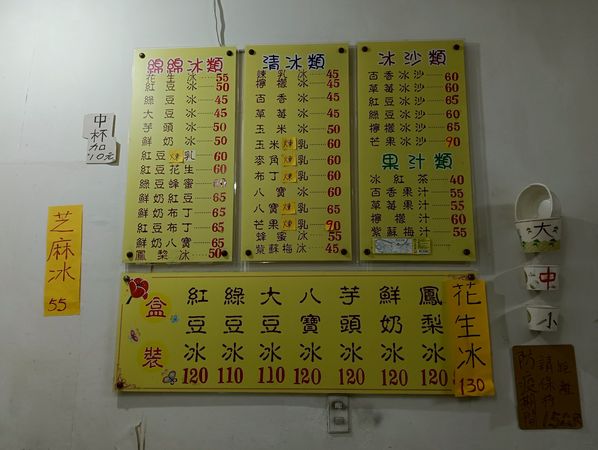 綿綿冰類
花生冰 55
紅豆冰 50
綠豆冰 45
大豆冰 45
芋頭冰 50
鮮奶冰 50
紅豆煉乳 60
紅豆花生 60
綠豆蜂蜜
鮮奶紅豆 65
鮮奶布丁 65
紅豆布丁 65
鮮奶八寶 65
鳳梨冰 50
清冰類
煉乳冰 45
檸檬冰 45
百香冰 45
草莓冰 45
玉米冰 50
玉米煉乳 60
麥角煉乳 60
布丁煉乳 60
八寶冰 50
八寶煉乳 65
芒果煉乳 90
蜂蜜冰 55
紫蘇梅冰 45
冰沙類
百香冰沙 60
草莓冰沙 60
紅豆冰沙 65
綠豆冰沙 60
檸檬冰沙 65
芒果冰沙 90
果汁類
冰紅茶 40
百香果汁 55
草莓果汁 55
檸檬汁 55
紫蘇梅汁 55
中杯加10元
芝麻冰 55
盒裝
紅豆冰 120
綠豆冰 110
大豆冰 110
八寶冰 120
芋頭冰 120
鮮奶冰 120
鳳梨冰 120
花生冰 130
大
中
小
防疫期間
請保持
距離